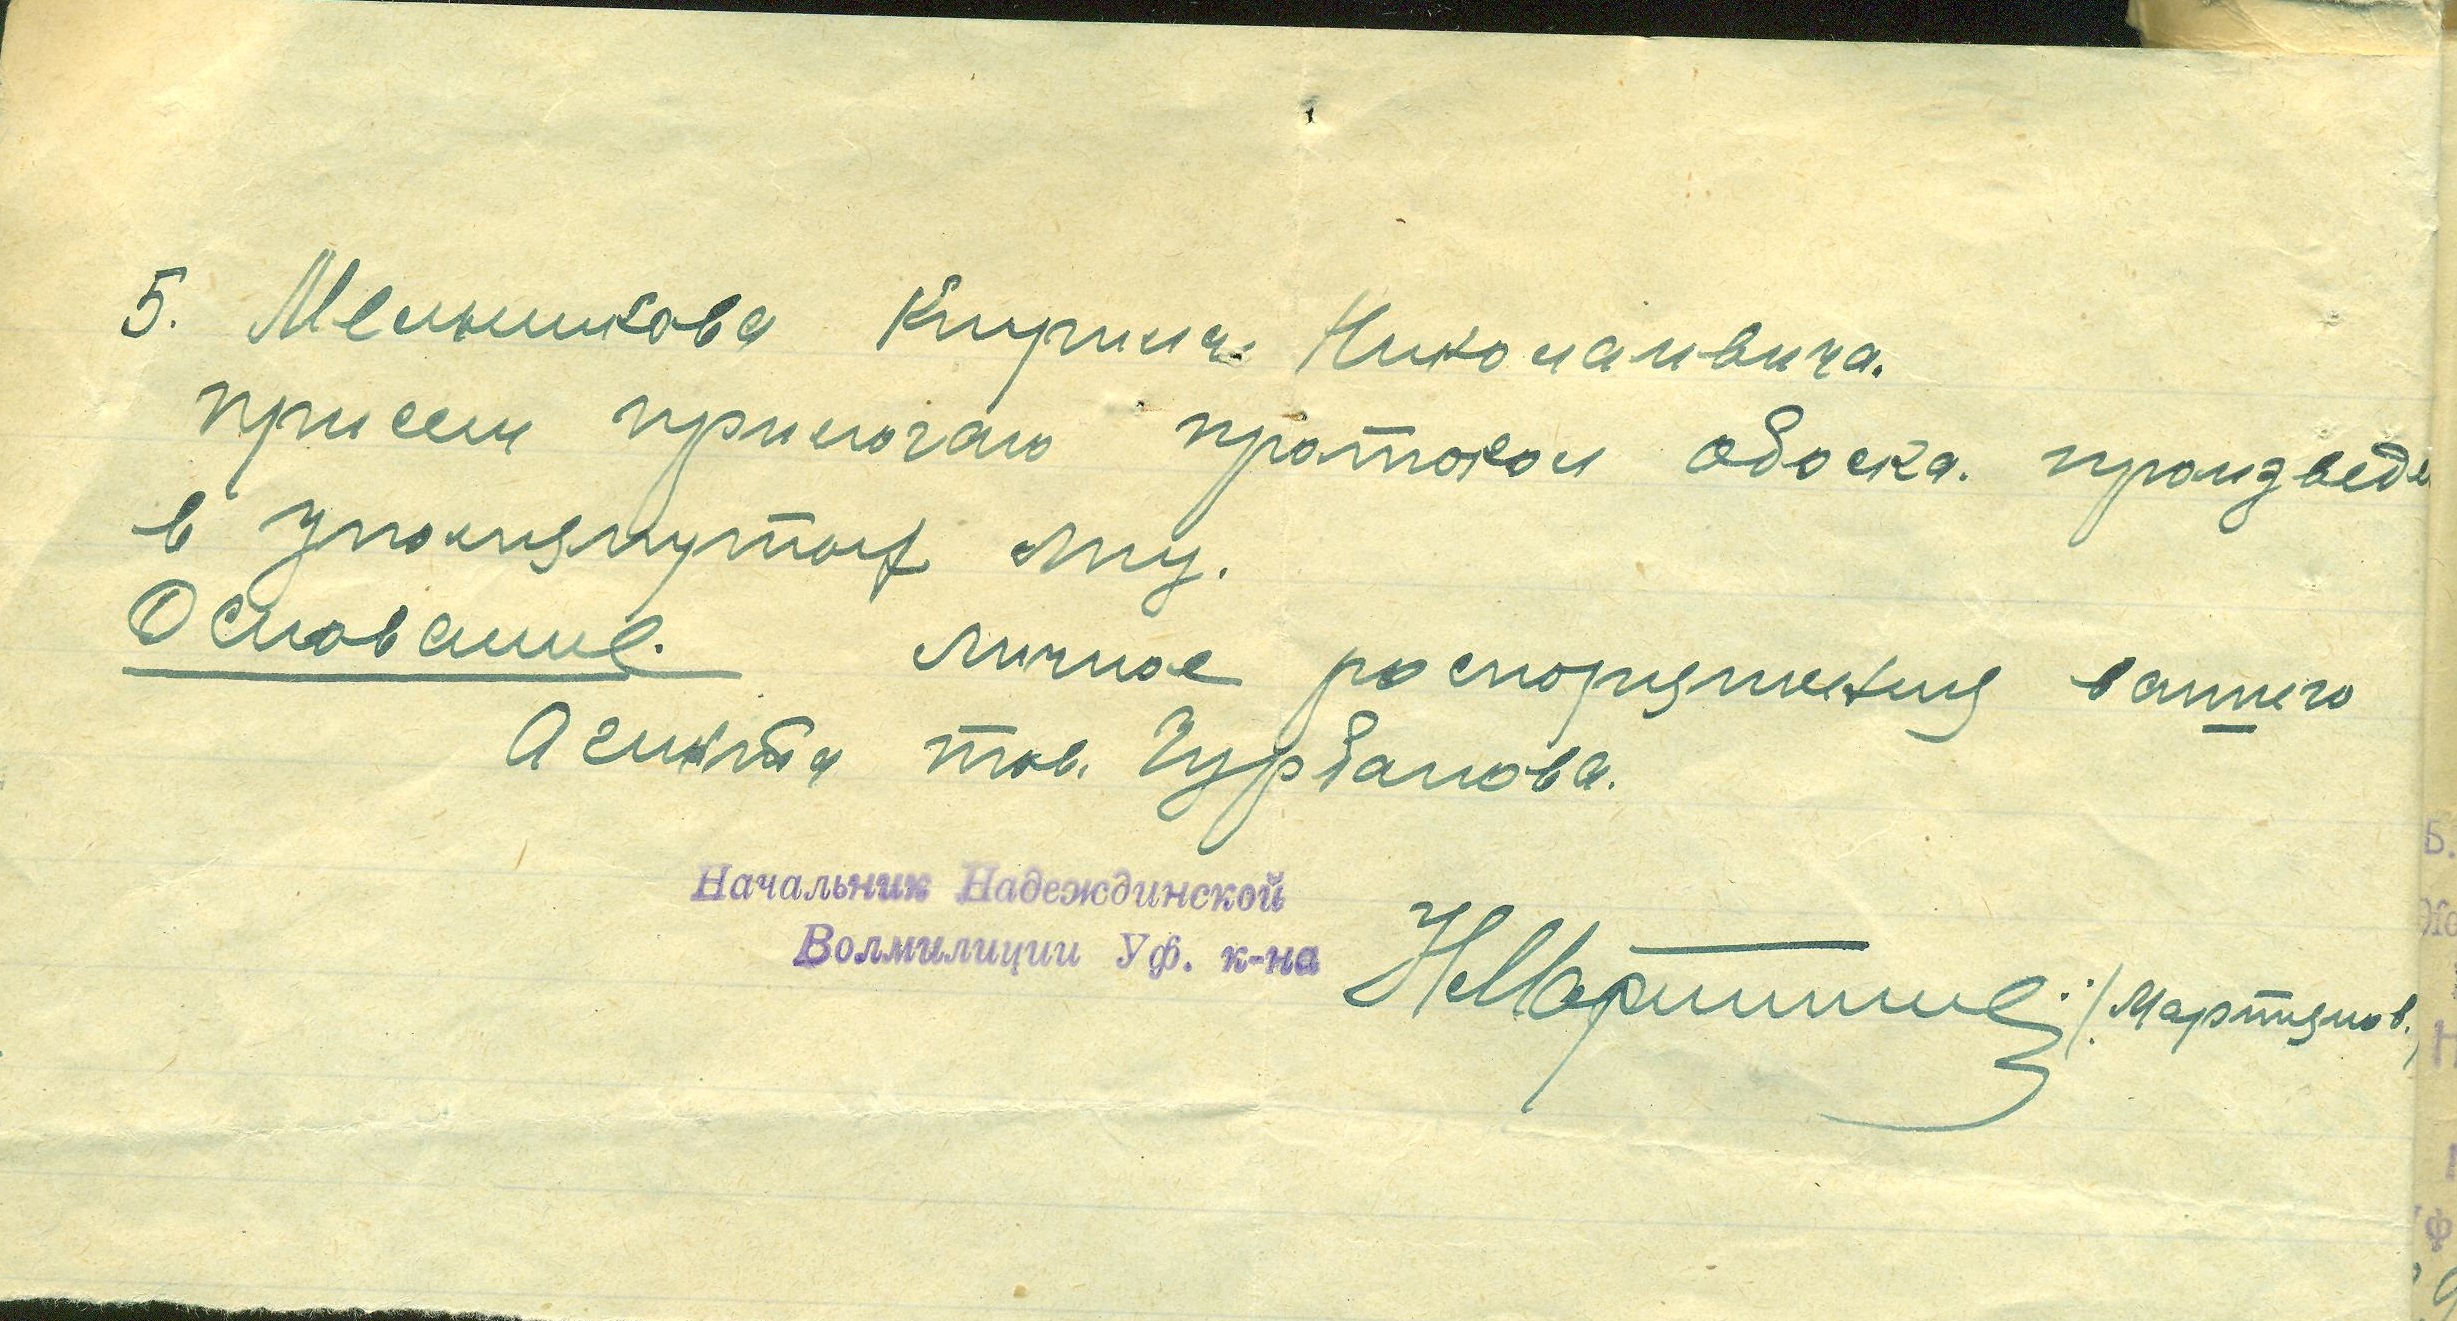 5. Мельникова Кирила Николаивича.
при сем прилогаю протокол обоска. произведе
в упомянутых лиц.
Основание. личное роспоряжения вашего
Агинта тов. Чурбанова.
Начальник Надеждинской
Волмилиции Уф. к-на
НМартын /Мартянов./